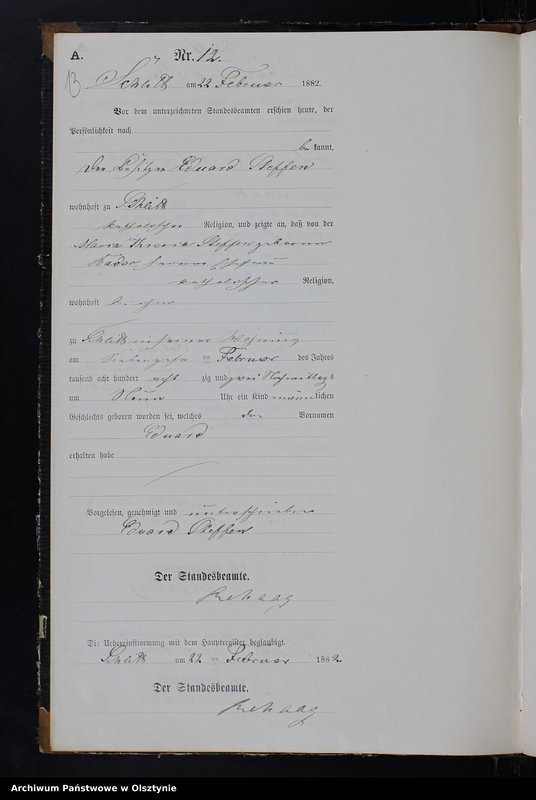 A.
Nr. 12.
13
Schlitt am 22 Februar 1882.
Vor dem unterzeichneten Standesbeamten erschien heute, der
Persönlichkeit nach
be kannt,
der Besitzer Eduard Steffen
wohnhaft zu Schlitt
katholischer Religion, und zeigte an, daß von der
Maria Steffen geborenen
seiner Ehefrau
katholischer Religion,
wohnhaft bei ihm
zu Schlitt in seiner Wohnung
am siebenzehn ten Februar des Jahres
tausend acht hundert acht zig und zwei Nachmittags
um Neun Uhr ein Kind männlichen
Geschlechts geboren worden sei, welches den Vornamen
Eduard
erhalten habe
Vorgelesen, genehmigt und unterschrieben
Eduard Steffen
Der Standesbeamte.
Rehaag
Die Uebereinstimmung mit dem Hauptregister beglaubigt.
Schlitt am 22 ten Februar 1882
Der Standesbeamte.
Rehaag
Archiwum Państwowe w Olsztynie